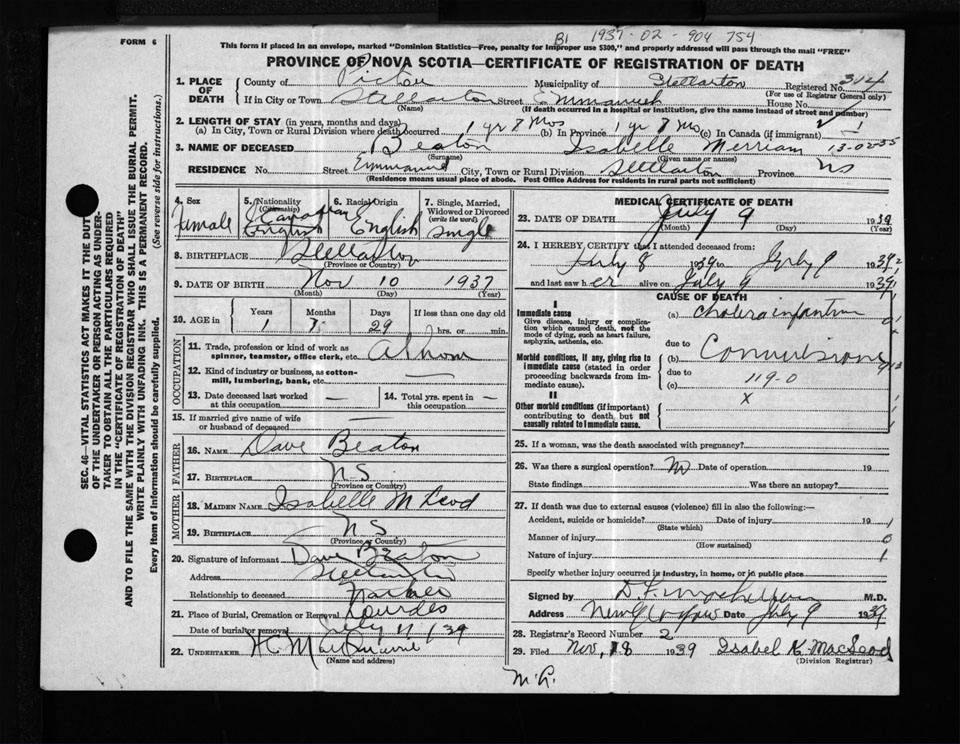 B1 1937-02-904 754
FORM 6
This form if placed in an envelope, marked "Dominion Statistics—Free, penalty for improper use $300," and properly addressed will pass through the mail "FREE"
PROVINCE OF NOVA SCOTIA—CERTIFICATE OF REGISTRATION OF DEATH
SEC. 46—VITAL STATISTICS ACT MAKES IT THE DUTY
OF THE UNDERTAKER OR PERSON ACTING AS UNDER-
TAKER TO OBTAIN ALL THE PARTICULARS REQUIRED
IN THE "CERTIFICATE OF REGISTRATION OF DEATH"
AND TO FILE THE SAME WITH THE DIVISION REGISTRAR WHO SHALL ISSUE THE BURIAL PERMIT.
WRITE PLAINLY WITH UNFADING INK. THIS IS A PERMANENT RECORD.
Every item of information should be carefully supplied. (See reverse side for instructions.)
1. PLACE OF DEATH County of Pictou Municipality of Stellarton Registered No. 314
(For use of Registrar General only)
If in City or Town Stellarton Street House No.
(Name) (If death occurred in a hospital or institution, give the name instead of street and number)
2. LENGTH OF STAY (in years, months and days)
(a) In City, Town or Rural Division where death occurred 1 yr 8 Mos (b) In Province 1 yr 8 Mo (c) In Canada (if immigrant)
3. NAME OF DECEASED Beaton Isabelle Merriam 13-02-35
(Surname) (Given name or names)
RESIDENCE No. Street City, Town or Rural Division Stellarton Province NS
(Residence means usual place of abode. Post Office Address for residents in rural parts not sufficient)
4. Sex Female
5. Nationality (Citizenship) Canadian English
6. Racial Origin English
7. Single, Married, Widowed or Divorced (write the word) Single
8. BIRTHPLACE Stellarton
(Province or Country)
9. DATE OF BIRTH Nov 10 1937
(Month) (Day) (Year)
10. AGE in Years Months Days If less than one day old
1 7 29 hrs. or min.
OCCUPATION
11. Trade, profession or kind of work as spinner, teamster, office clerk, etc. At home
12. Kind of industry or business, as cotton-mill, lumbering, bank, etc. —
13. Date deceased last worked at this occupation —
14. Total yrs. spent in this occupation —
15. If married give name of wife or husband of deceased —
FATHER
16. NAME Dave Beaton
17. BIRTHPLACE N S
(Province or Country)
MOTHER
18. MAIDEN NAME Isabelle McLeod
19. BIRTHPLACE N S
(Province or Country)
20. Signature of informant Dave Beaton
Address Stellarton
Relationship to deceased Father
21. Place of Burial, Cremation or Removal Lourdes
Date of burial or removal July 11/39
22. UNDERTAKER H C
(Name and address)
MEDICAL CERTIFICATE OF DEATH
23. DATE OF DEATH July 9 1939
(Month) (Day) (Year)
24. I HEREBY CERTIFY that I attended deceased from:
July 8 1939 to July 9 1939
and last saw her alive on July 9 1939
CAUSE OF DEATH
I
Immediate cause (a) Cholera infantum
Give disease, injury or complication which caused death, not the mode of dying, such as heart failure, asphyxia, asthenia, etc.
due to
Morbid conditions, if any, giving rise to immediate cause (stated in order proceeding backwards from immediate cause). (b) Convulsions
due to
(c) 119-0
II
X
Other morbid conditions (if important) contributing to death, but not causally related to immediate cause.
25. If a woman, was the death associated with pregnancy?
26. Was there a surgical operation? No Date of operation 19
State findings Was there an autopsy?
27. If death was due to external causes (violence) fill in also the following:—
Accident, suicide or homicide? Date of injury 19
(State which)
Manner of injury
(How sustained)
Nature of injury
Specify whether injury occurred in industry, in home, or in public place
Signed by M.D.
Address New Glasgow Date July 9 1939
28. Registrar's Record Number 2
29. Filed Nov. 18 1939 Isabel K. MacLeod
(Division Registrar)